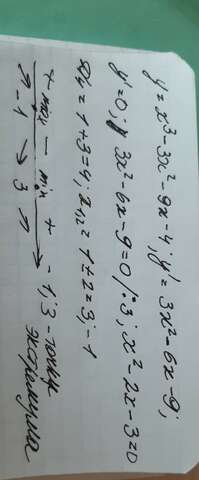 y = x³ - 3x² - 9x - 4; y' = 3x² - 6x - 9;
y' = 0; 3x² - 6x - 9 = 0 /:3; x² - 2x - 3 = 0
D/4 = 1 + 3 = 4; x₁,₂ = 1 ± 2 = 3; -1
+ max - min + -1; 3 - точки
↗ -1 ↘ 3 ↗ экстремума